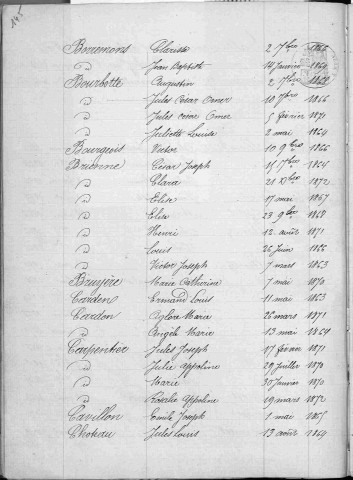 Berremons Clarisse 2 7bre 1866
" Jean Baptiste 14 Janvier 1864
Bourbotte Augustin 2 7bre
" Jules Cesar Omer 10 7bre 1866
" Jules cesar Omer 8 février 1871
" Juliette Louise 2 mai 1864
Bourgeois Victor 10 9bre 1866
Brienne César Joseph 11 7bre 1864
" Clara 21 Xbre 1872
" Elise 17 mai 1867
" Elise 23 9bre 1868
" Henri 12 août 1871
" Louis 26 Juin 1866
" Victor Joseph 7 mars 1863
Bruyère Marie Catherine 7 mai 1870
Carden Ermand Louis 11 mai 1863
Cardon Aglaée Marie 26 mars 1871
" Angèle Marie 13 mai 1869
Carpentier Jules Joseph 17 février 1871
" Julie Appoline 29 Juillet 1870
" Marie 30 Janvier 1870
" Rosalie Appoline 19 mars 1872
Cavillon Emile Joseph 1 mai 1865
Choteau Jules Louis 13 août 1869